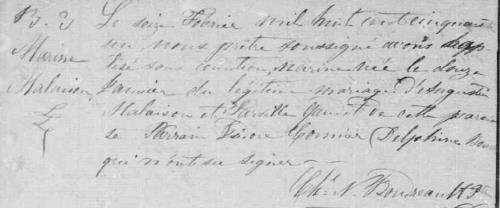 B. 3
Marine
Malaison
Le seize Février mil huit cent cinquante
un, nous prêtre soussigné avons bap
tisé sous condition, Marine née le douze
Janvier du légitime mariage d'Augustin
Malaison et Marsille Gaudet de cette parois
se Parrain Isidore Cormier (Delphine
qui n'ont su signer —
Chs N. Boudreault Ptr